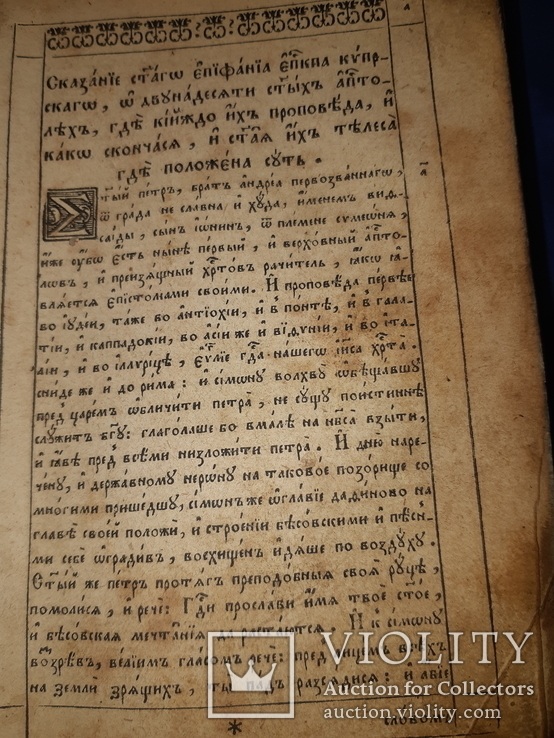 Сказа́нїе ст҃а́гѡ є҆пїфа́нїа є҆п҃кпа кѵ́пр-
скагѡ, ѡ҆ двꙋна́десѧти ст҃ы́хъ а҆п҃то-
лѣхъ, гдѣ̀ кі́йждо и҆́хъ проповѣ́да, и҆
ка́кѡ сконча́сѧ, и҆ ст҃а̑ѧ и҆́хъ тѣлеса̀
гдѣ̀ положе́на сꙋ́ть.
Ст҃ы́й пе́тръ, бра́тъ а҆ндре́а первозва́ннагѡ, а҃
ѿ гра́да не сла́вна и҆ хꙋ́да, и҆́менемъ виѳ-
саі́ды, сы́нъ і҆ѡ́нинъ, ѿ пле́мене сѵмеѡ́нѧ,
и҆́же ᲂу҆́бѡ є҆́сть ны́нѣ пе́рвый, и҆ верхо́вный а҆п҃то-
лѡвъ, и҆ преизѧ́щный хр҃то́въ рачи́тель, ꙗ҆́кѡ ꙗ҆-
влѧ́етсѧ є҆пїсто́лами свои́ми. И҆ проповѣ́да пе́рвѣе
во і҆ꙋде́и, та́же во а҆нтїохі́и, и҆ в̾ по́нтѣ, и҆ в̾ гала-
ті́и, и҆ каппадокі́и, во а҆сі́и же и҆ виѳѵні́и, и҆ во і҆та-
лі́и, и҆ во і҆ллѵрі́цѣ, є҆ѵ҃лїе гдⷭ҇а на́шегѡ і҆и҃са хр҃та̀.
сни́де же и҆ до ри́ма: и҆ сі́мѡнꙋ волхвꙋ̀ ѡ҆бѣща́вшꙋ
пред̾ царе́мъ ѡ҆бличи́ти петра̀, не сꙋ́щꙋ пои́стиннѣ
слꙋжи́тъ бг҃ꙋ: глаго́лаше бо вма́лѣ на нб҃са̀ взы́ти,
и҆ ꙗ҆́вѣ пред̾ всѣ́ми низложи́ти петра̀. И҆ дню̀ наре-
че́нꙋ, и҆ держа́вномꙋ неро́нꙋ на таково́е позо́рище со
мно́гими прише́дшꙋ, сі́мѡнъ же ѡ҆гла́вїе да́фїново на
главѣ̀ свое́й положѝ, и҆ строе́нїи бѣсо́вскими и҆ пѣ́сн-
ми себѐ ѡ҆гради́въ, восхище́н и҆дѧ́ше по воздꙋ́хꙋ.
Ст҃ы́й же пе́тръ протѧ́гъ преподѡ́бныѧ своѧ̑ рꙋ́цѣ,
помоли́сѧ, и҆ речѐ: Гд҃и просла́ви и҆́мѧ твоѐ ст҃о́е,
и҆ бѣсо́вскаѧ мечта̑нїѧ да раста́ютсѧ. И҆ к̾ сі́мѡнꙋ
воззрѣ́въ, ве́лїимъ гла́сомъ речѐ: пред̾ лице́мъ всѣ́хъ
на землѝ зрѧ́щихъ, ты̀ па́дъ разсѧ́дисѧ: и҆ а҆́бїе
VIOLITY
Auction for Collectors
auction.violity.com